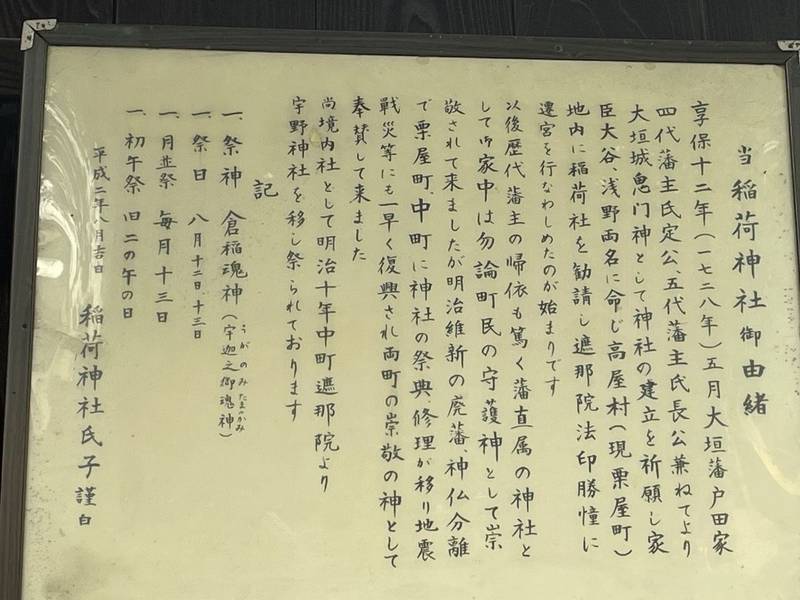 当稲荷神社御由緒
享保十二年(一七二八年)五月大垣藩戸田家
四代藩主氏定公、五代藩主氏長公兼ねてより
大垣城鬼門神として神社の建立を祈願し家
臣大谷、浅野両名に命じ高屋村(現栗屋町)
地内に稲荷社を勧請し遮那院法印勝憧に
遷宮を行なわしめたのが始まりです
以後歴代藩主の帰依も篤く藩直属の神社と
して御家中は勿論町民の守護神として崇
敬されて来ましたが明治維新の廃藩、神仏分離
で栗屋町、中町に神社の祭典、修理が移り地震
戦災等にも一早く復興され両町の崇敬の神として
奉賛して来ました
尚境内社として明治十年中町遮那院より
宇野神社を移し祭られております
記
一、祭神 倉稲魂神(宇迦之御魂神)
うがのみたまのかみ
一、祭日 八月十二日、十三日
一、月並祭 毎月十三日
一、初午祭 旧二の午の日
平成二年八月吉日
稲荷神社氏子謹白